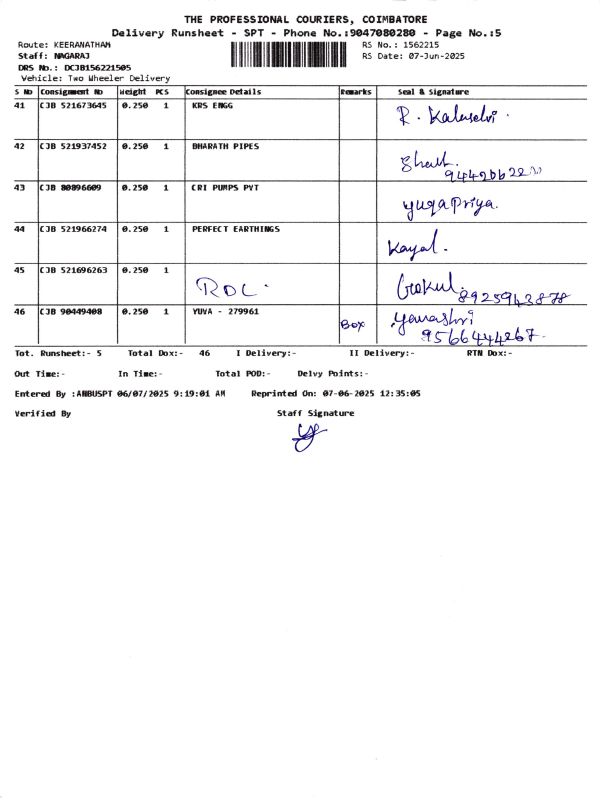 THE PROFESSIONAL COURIERS, COIMBATORE
Delivery Runsheet - SPT - Phone No.:9047080280 - Page No.:5
Route: KEERANATHAM RS No.: 1562215
Staff: NAGARAJ RS Date: 07-Jun-2025
DRS No.: DCJB156221505
Vehicle: Two Wheeler Delivery
S No Consignment No Weight PCS Consignee Details Remarks Seal & Signature
41 CJB 521673645 0.250 1 KRS ENGG R. Kaleselvi.
42 CJB 521937452 0.250 1 BHARATH PIPES
43 CJB 80896609 0.250 1 CRI PUMPS PVT yugapriya.
44 CJB 521966274 0.250 1 PERFECT EARTHINGS Kayal.
45 CJB 521696263 0.250 1 RDC. Gokul. 8925943878
46 CJB 90449408 0.250 1 YUVA - 279961 Box
9566444267.
Tot. Runsheet:- 5 Total Dox:- 46 I Delivery:- II Delivery:- RTN Dox:-
Out Time:- In Time:- Total POD:- Delvy Points:-
Entered By :ANBUSPT 06/07/2025 9:19:01 AM Reprinted On: 07-06-2025 12:35:05
Verified By Staff Signature